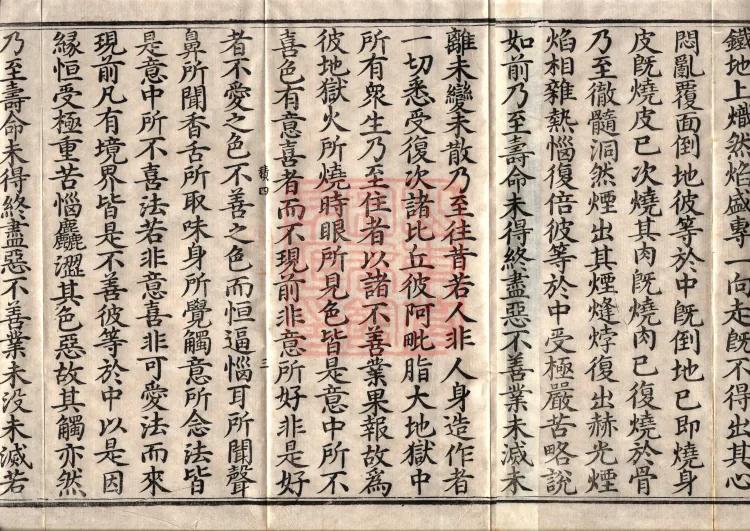 鐵地上熾然焰盛專一向走既不得出其心
悶亂覆面倒地彼等於中既倒地已即燒身
皮既燒皮已次燒其肉既燒肉已復燒於骨
乃至徹髓洞然煙出其煙熢㶿復出赫光煙
焰相雜熱惱復倍彼等於中受極嚴苦略說
如前乃至壽命未得終盡惡不善業未滅未
離未變未散乃至往昔若人非人身造作者
一切悉受復次諸比丘彼阿毗脂大地獄中
所有衆生乃至住者以諸不善業果報故為
彼地獄火所燒時眼所見色皆是意中所不
喜色有意喜者而不現前非意所好非是好
號四 三
者不愛之色不善之色而恒逼惱耳所聞聲
鼻所聞香舌所取味身所覺觸意所念法皆
是意中所不喜法若非意喜非可愛法而來
現前凡有境界皆是不善彼等於中以是因
緣恒受極重苦惱麤澀其色惡故其觸亦然
乃至壽命未得終盡惡不善業未没未滅若